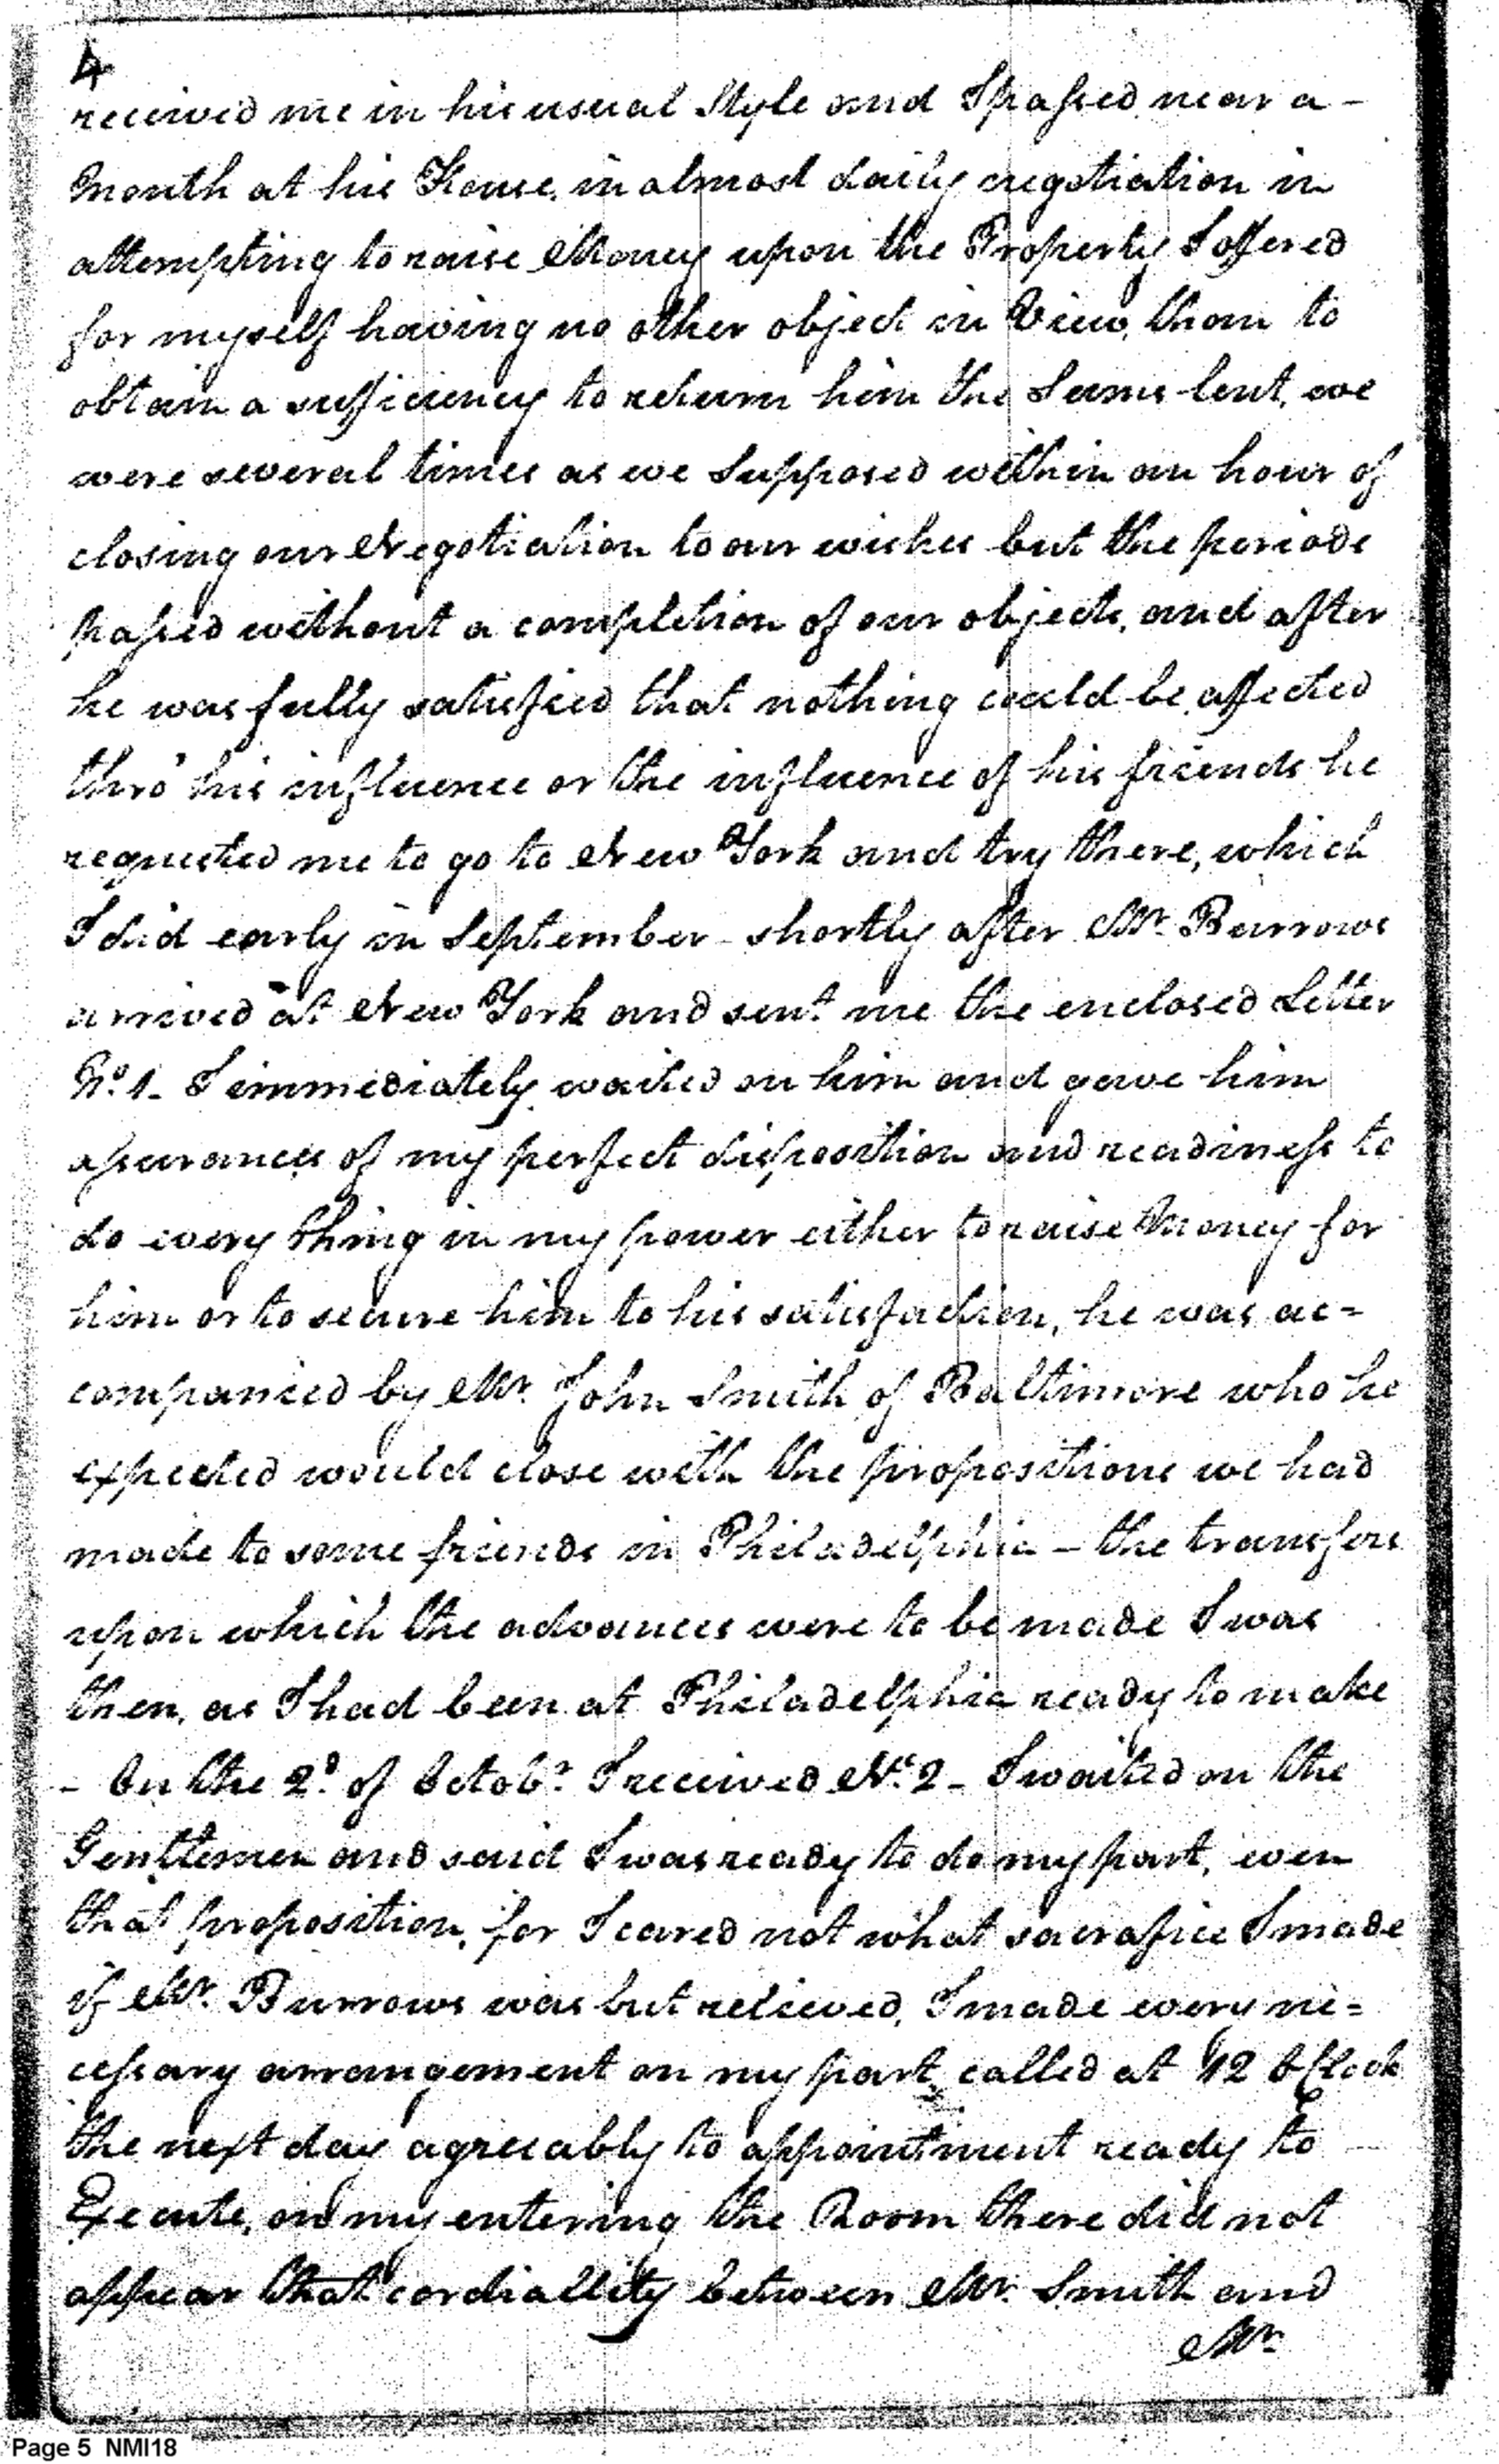 4
received me in his usual Style and I passed near a -
Month at his House, in almost daily negotiation in
attempting to raise Money upon the Property I offered
for myself having no other object in View, than to
obtain a sufficiency to return him the Sums lent, we
were several times as we Supposed within an hour of
closing our Negotiation to our wishes but the periods
passed without a completion of our objects, and after
he was fully satisfied that nothing could be affected
thro' his influence or the influence of his friends he
requested me to go to New York and try there, which
I did early in September - shortly after Mr. Burrows
arrived at New York and sent me the enclosed Letter
No. 1 - I immediately waited on him and gave him
assurances of my perfect disposition and readiness to
do every thing in my power either to raise Money for
him or to secure him to his satisfaction, he was ac=
companied by Mr. John Smith of Baltimore who he
expected would close with the propositions we had
made to some friends in Philadelphia - the transfers
upon which the advances were to be made I was
then, as I had been at Philadelphia ready to make
- On the 2d. of Octobr. I received No. 2 - I waited on the
Gentlemen and said I was ready to do my part, even
that proposition, for I cared not what sacrafice I made
if Mr. Burrows was but relieved, I made every ne=
cessary arrangement on my part called at 12 oClock
the next day agreeably to appointment ready to
Execute, on my entering the Room there did not
appear that cordiallity between Mr. Smith and
Mr.
Page 5 NMI18